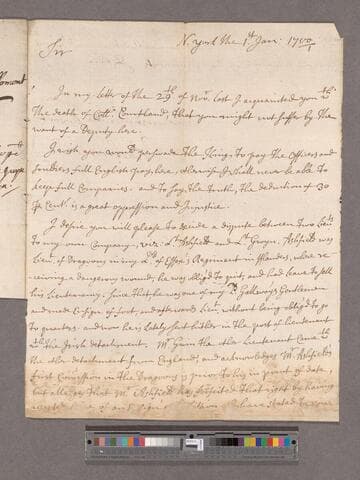 lomont
N. york the 1st Jan: 1700/1
Sir
In my letter of the 29th of Novr. last I acquainted you wth.
The death of Coll. Courtland, that you might not suffer by the
want of a Deputy here.
I wish you would perswade the King to pay the Officers and
Souldiers full English pay here, otherwise I shall never be able to
keep full Companies. and to say the truth, the deduction of 30
P Cent. is a great oppression and Injustice.
I desire you will please to decide a dispute between two Lieuts
to my own Company, viz: Mr. Ashfield and Mr. Gwyn. Ashfield was
Lieut. of Dragoons in my Ld. of Essex's Regiment in fflanders, where re=
=ceiving a dangerous wound, he was oblig'd to quit, and had leave to sell
his Lieutenancy: Since that, he was one of my Ld. Galloway's Gentlemen
and made Ensign of foot, and afterwards Lieut. without being oblig'd to go
to quarters. and now he is lately sent hither in the post of Lieutenant
wth. the Irish detachment. Mr. Gwin the other Lieutenant came wth
the other detachment from England, and acknowledges Mr. Ashfield's
first Commission in the Dragoons is prior to his in point of date,
but alleges that Mr. Ashfield has forfeited that right by having
accepted of an Ensign's I have stated